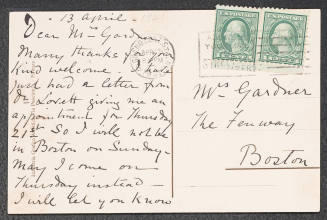 13 April
Dear Mrs Gardner
Many thanks for your
kind welcome. I have
just had a letter from
Dr Lovett giving me an
appointment for Thursday
21st So I will not be
in Boston on Sunday -
May I come on
Thursday instead -
I will let you know
U.S. POSTAGE
U.S. POSTAGE
Mrs Gardner
The Fenway
Boston